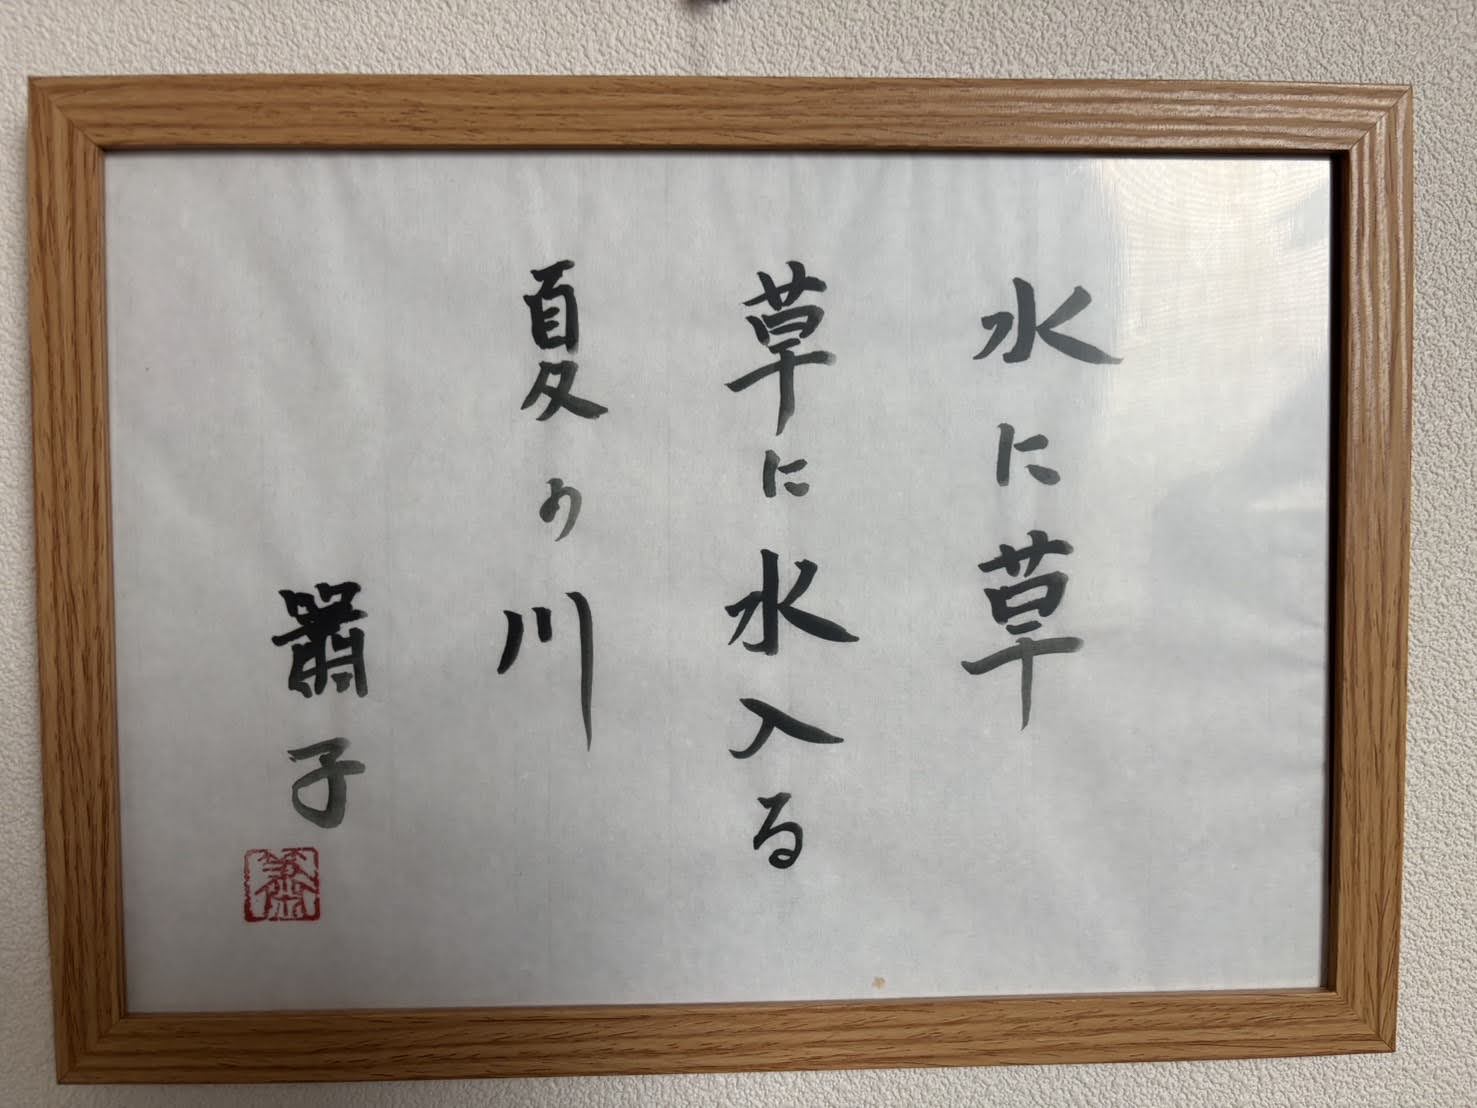 水に草
草に水入る
夏の川
子